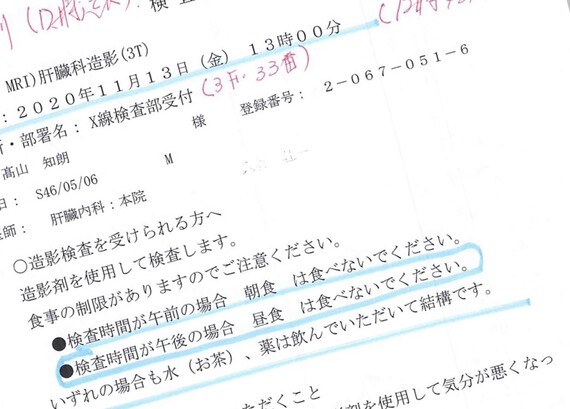 検査
MRI)肝臓科造影(3T)
：2020年11月13日（金） 13時00分
・部署名：X線検査部受付 (3F・33番)
登録番号： 2-067-051-6
高山 知朗 様
日： S46/05/06 M
医師： 肝臓内科：本院
○造影検査を受けられる方へ
造影剤を使用して検査します。
食事の制限がありますのでご注意ください。
●検査時間が午前の場合 朝食 は食べないでください。
●検査時間が午後の場合 昼食 は食べないでください。
いずれの場合も水（お茶）、薬は飲んでいただいて結構です。
ただくこと
剤を使用して気分が悪くなっ